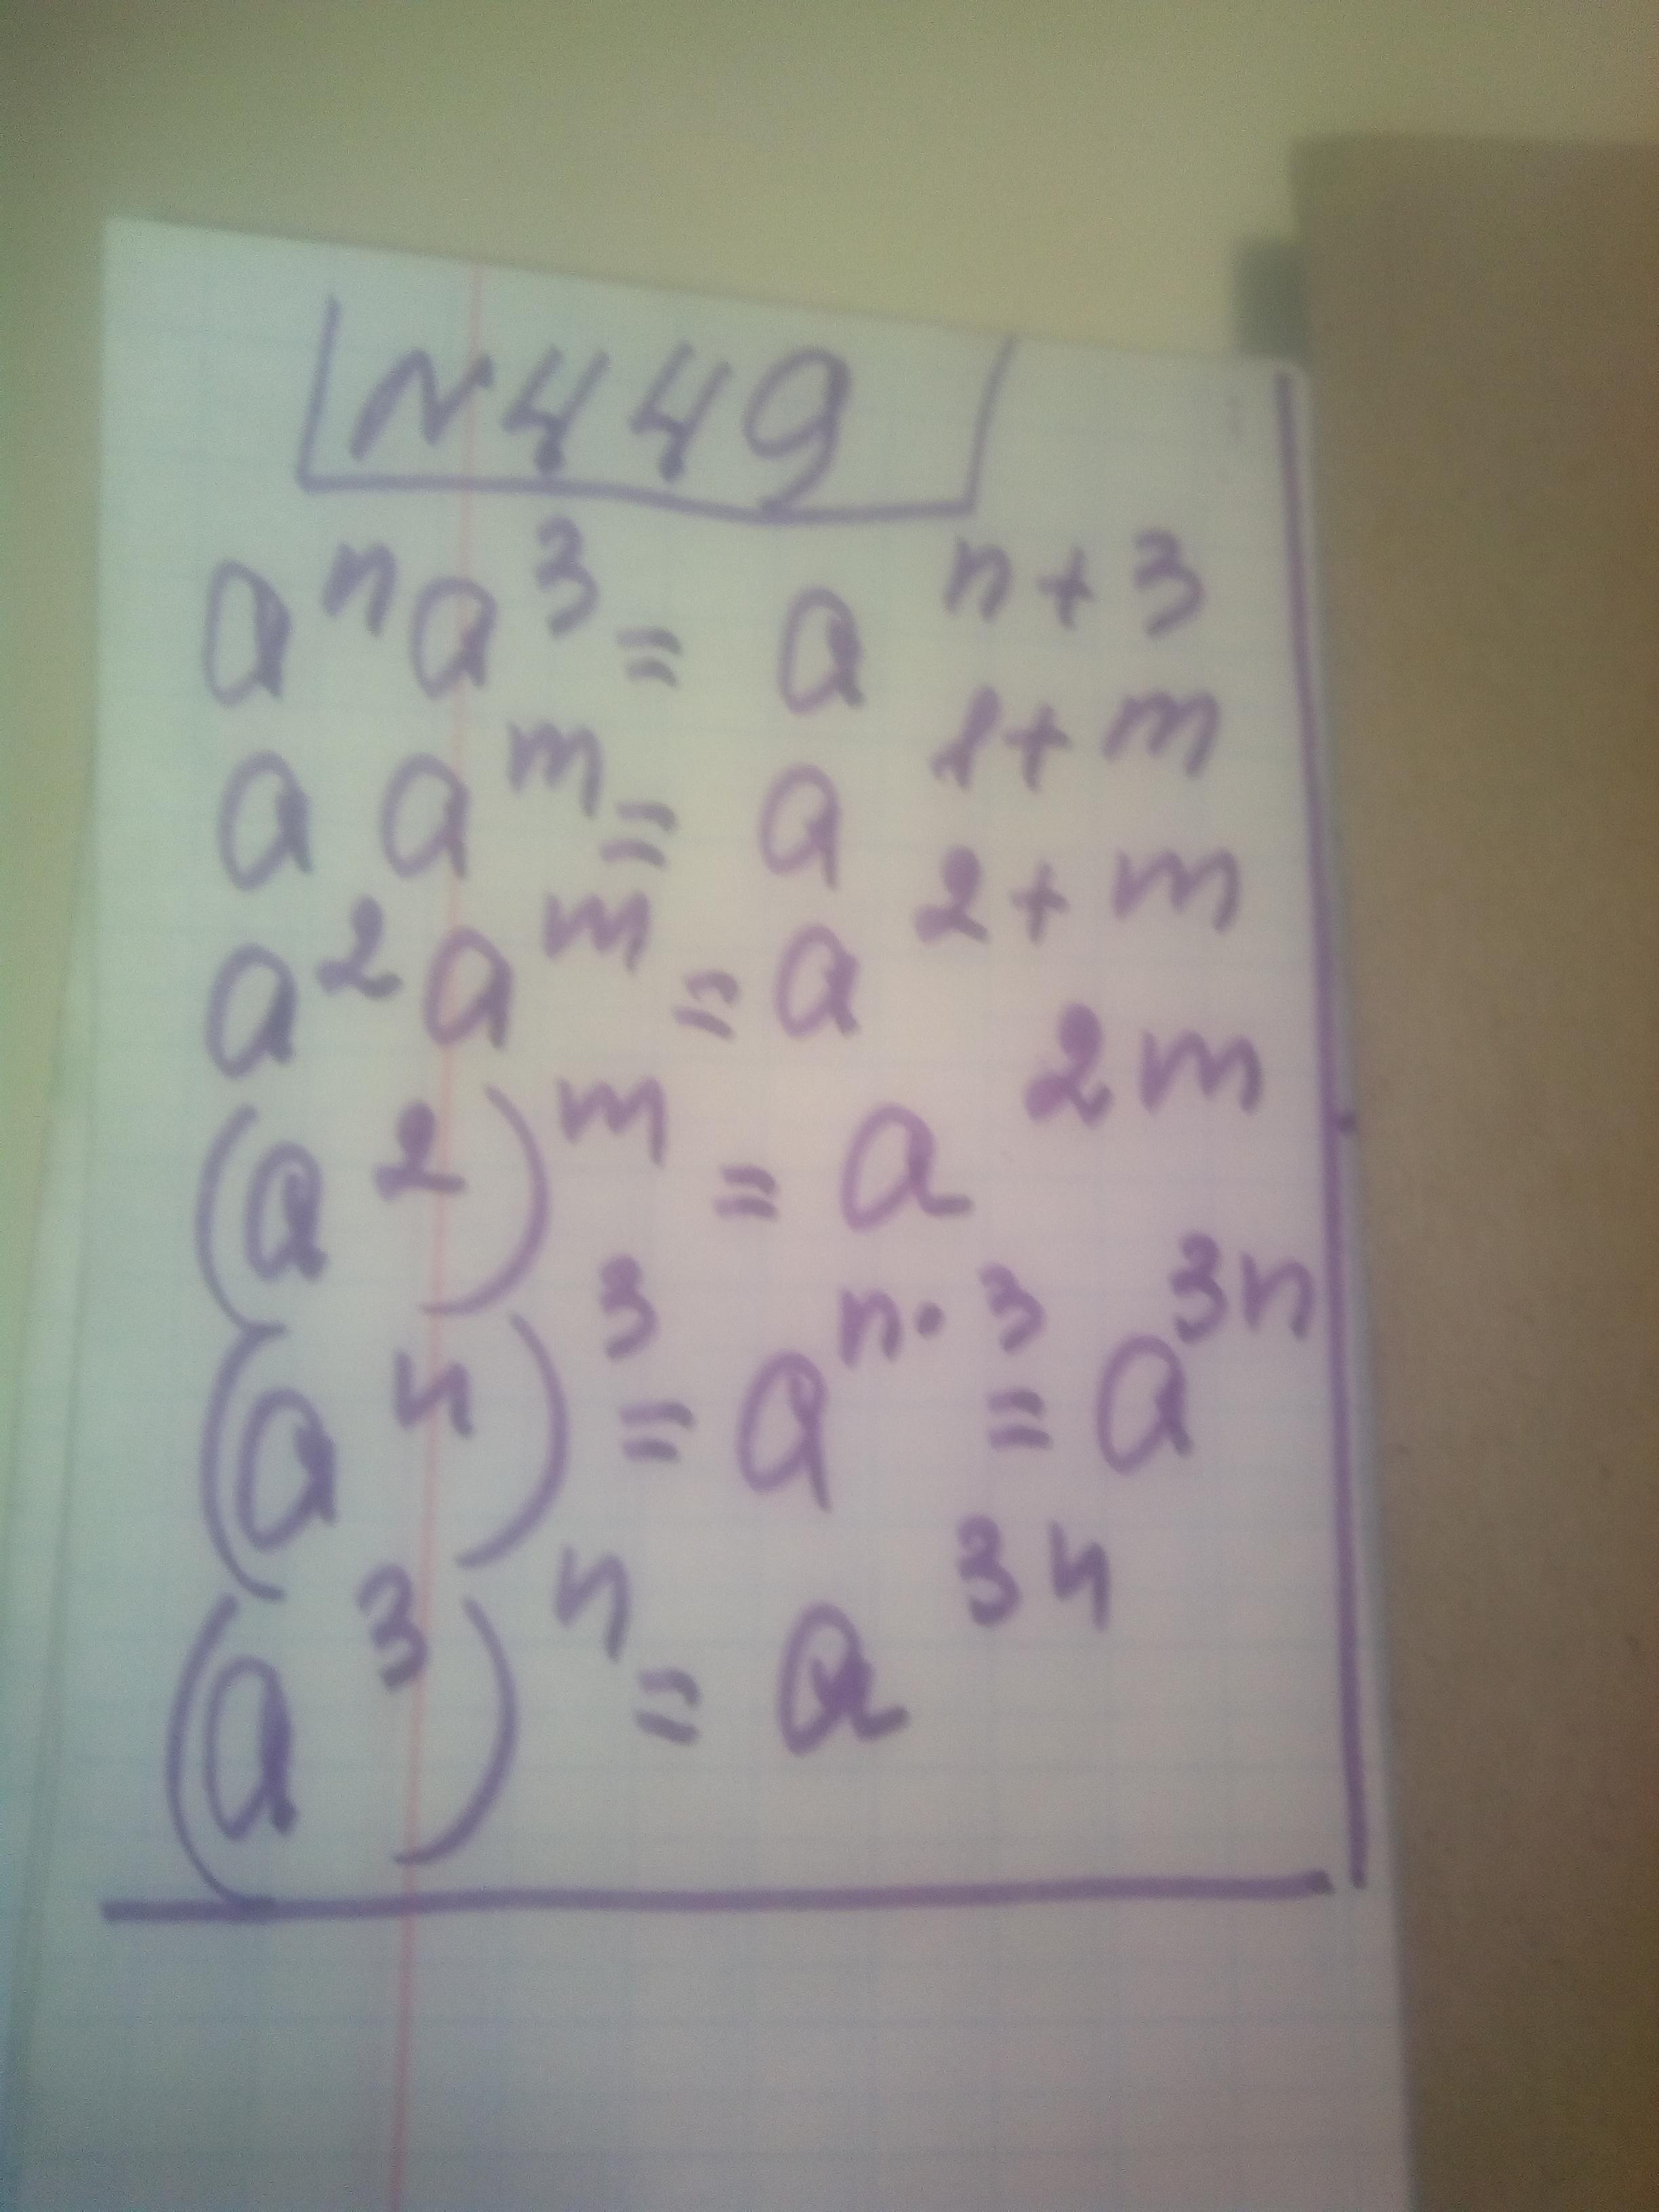 N449
aⁿa³ = aⁿ⁺³
a aᵐ = a¹⁺ᵐ
a²aᵐ = a²⁺ᵐ
(a²)ᵐ = a²ᵐ
(aⁿ)³ = aⁿ˙³ = a³ⁿ
(a³)ⁿ = a³ⁿ